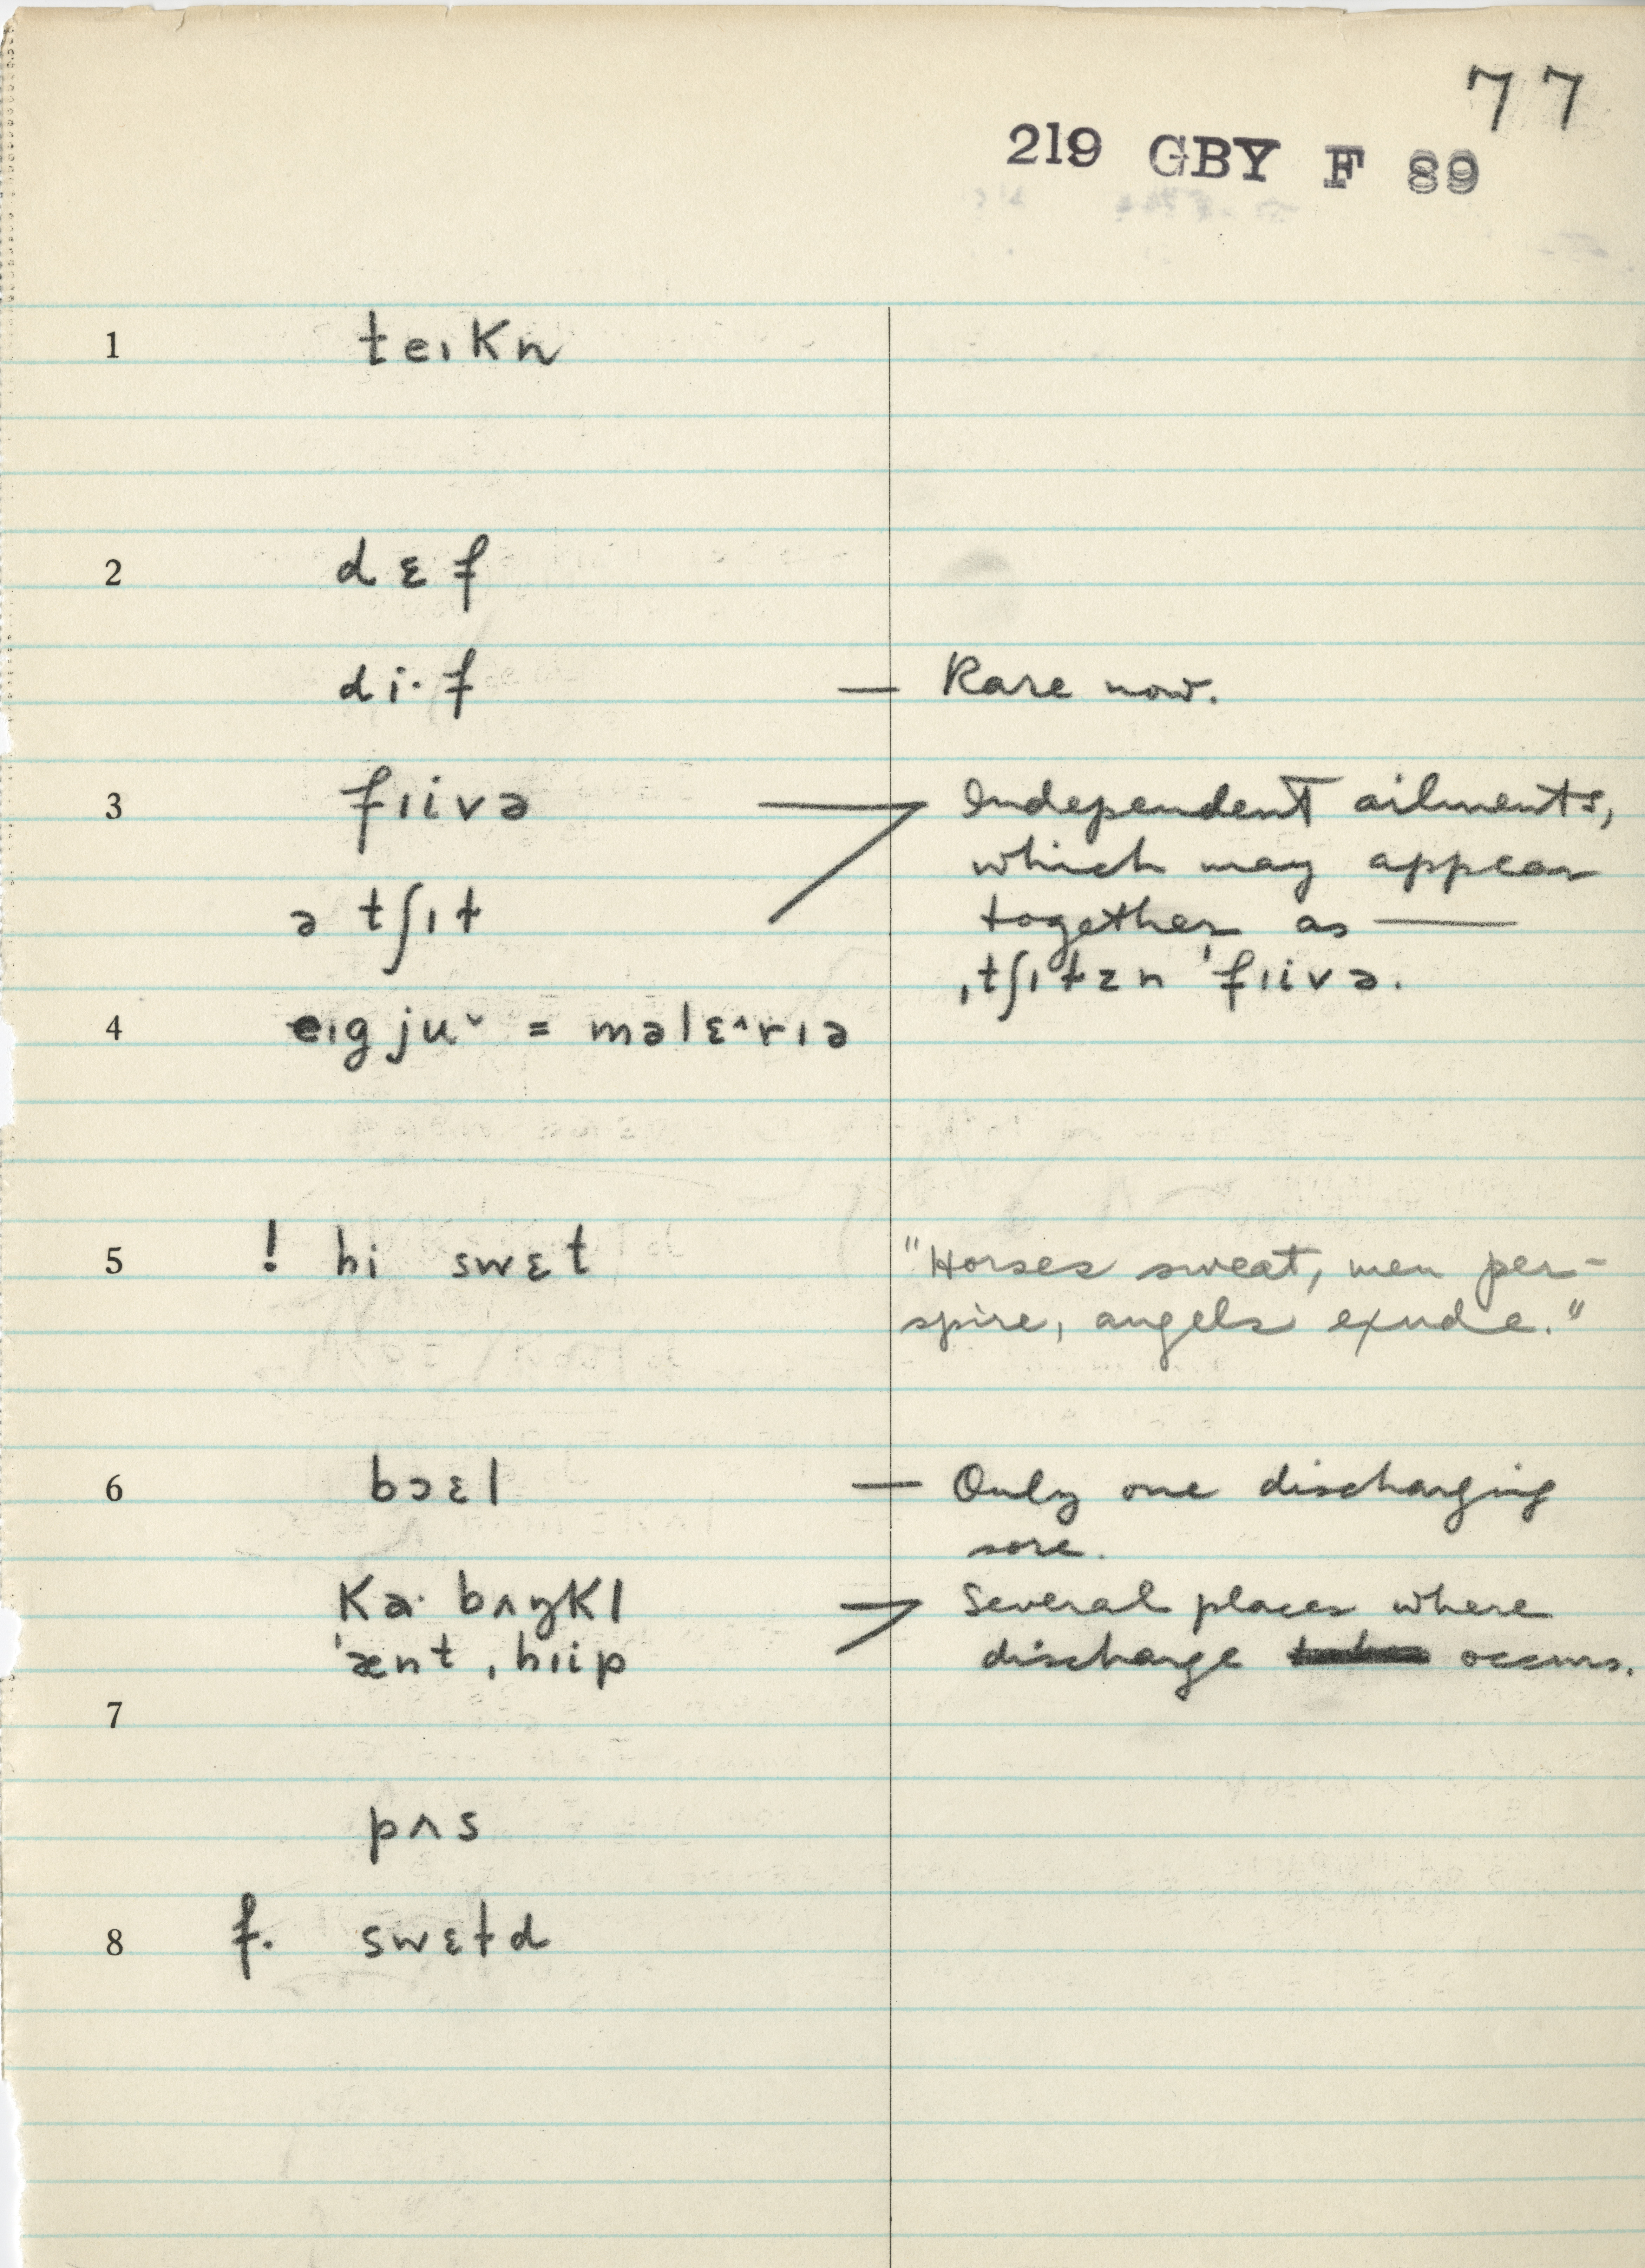 77
219 GBY F 89
1 teɪkn
2 dɛf
di·f — Rare now.
3 fɪivə Independent ailments,
which may appear
ə tʃɪt together as —
ˌtʃɪtzn ˈfɪivə.
4 eɪgjuˇ = məlɛ^rɪə
5 ! hi swɛt "Horses sweat, men per-
spire, angels exude."
6 bɔɛl — Only one discharging
sore.
ka· bʌŋkl Several places where
ˈænt ˌhɪip discharge occurs.
7
pʌs
8 f. swɛtd